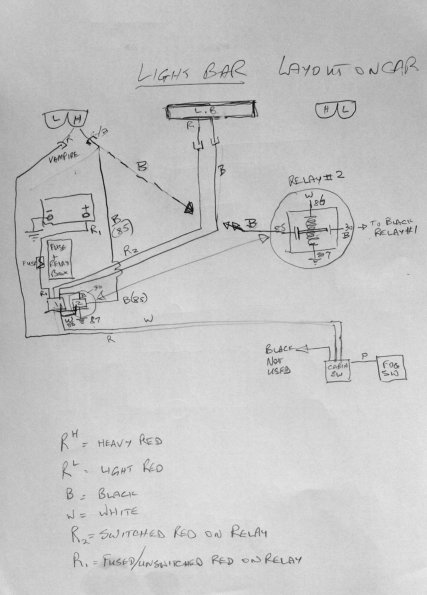 LIGHT BAR LAYOUT ON CAR
L H
L.B
H L
R
VAMPIRE
B
B
RELAY #2
W
86
85
B
30
B
87
TO BLACK
RELAY #1
R1
B
(85)
R2
FUSE
FUSE
+
RELAY
BOX
B(85)
87
W
R
BLACK
NOT
USED
CABIN
SW
P
FOG
SW
R^H = HEAVY RED
R^L = LIGHT RED
B = BLACK
W = WHITE
R2 = SWITCHED RED ON RELAY
R1 = FUSED/UNSWITCHED RED ON RELAY